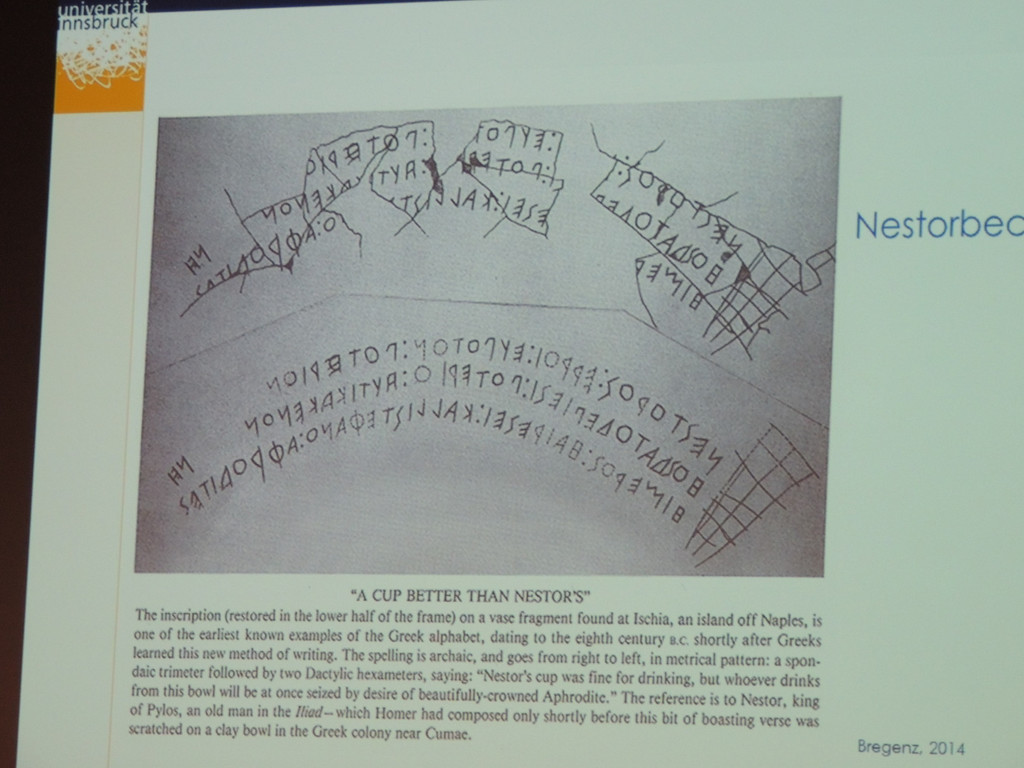 universität
innsbruck
Nestorbec
ΝΕΣΤΟΡΟΣ:ΕΡΡΟΙ:ΕΥΠΟΤΟΝ:ΠΟΤΕΡΙΟΝ
ΗΟΣΔΑΤΟΔΕΠΙΕΣΙ:ΠΟΤΕΡΙΟ:ΑΥΤΙΚΑΚΕΝΟΝ
ΗΙΜΕΡΟΣ:ΗΑΙΡΕΣΕΙ:ΚΑΛΛΙΣΤΕΦΑΝΟ:ΑΦΡΟΔΙΤΕΣ
"A CUP BETTER THAN NESTOR'S"
The inscription (restored in the lower half of the frame) on a vase fragment found at Ischia, an island off Naples, is
one of the earliest known examples of the Greek alphabet, dating to the eighth century B.C. shortly after Greeks
learned this new method of writing. The spelling is archaic, and goes from right to left, in metrical pattern: a spon-
daic trimeter followed by two Dactylic hexameters, saying: "Nestor's cup was fine for drinking, but whoever drinks
from this bowl will be at once seized by desire of beautifully-crowned Aphrodite." The reference is to Nestor, king
of Pylos, an old man in the Iliad—which Homer had composed only shortly before this bit of boasting verse was
scratched on a clay bowl in the Greek colony near Cumae.
Bregenz, 2014